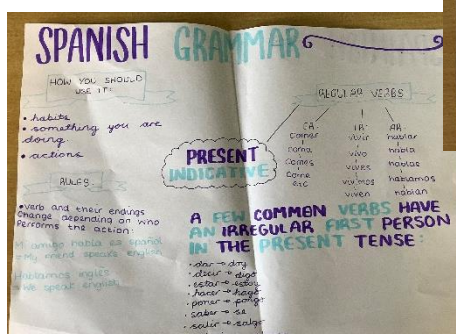 SPANISH GRAMMAR
HOW YOU SHOULD
USE IT:
• habits
• something you are
doing
• actions
RULES
• verb and their endings
change depending on who
performs the action:
Mi amigo habla es pañol
= My friend speaks english
Hablamos inglés
= We speak english
PRESENT
INDICATIVE
REGULAR VERBS
ER
comer
coma
comes
come
etc
IR
vivir
vivo
vives
vivimos
viven
AR
hablar
habla
hablas
hablamos
hablan
A FEW COMMON VERBS HAVE
AN IRREGULAR FIRST PERSON
IN THE PRESENT TENSE:
• dar → doy
• decir → digo
• estar → estoy
• hacer → hago
• poner → pongo
• saber → se
• salir → salgo